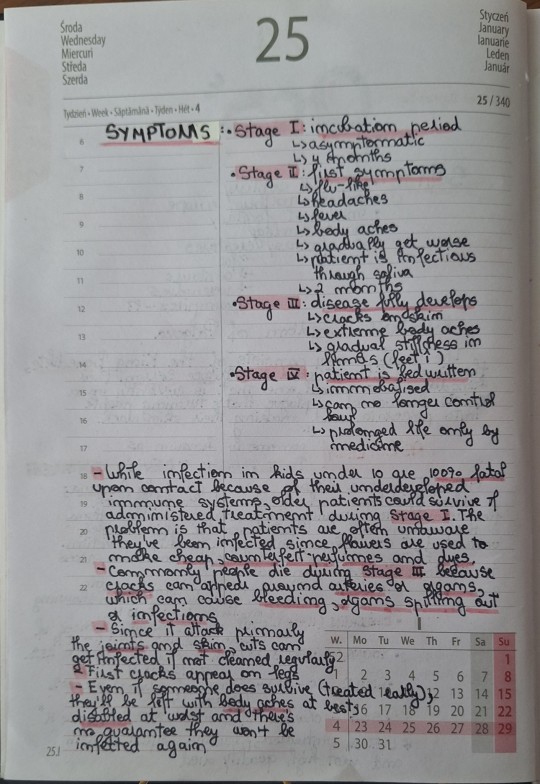 Środa
Wednesday
Miercuri
Středa
Szerda
25
Styczeń
January
Ianuarie
Leden
Január
Tydzień • Week • Săptămână • Týden • Hét • 4
25 / 340
6
7
8
9
10
11
12
13
14
15
16
17
18
19
20
21
22
SYMPTOMS:
• Stage I: incubation period
↳ asymptormatic
↳ 4 months
• Stage II: first symptoms
↳ flu-like
↳ headaches
↳ fever
↳ body aches
↳ gradually get worse
↳ patient is infectious
through saliva
↳ 2 months
• Stage III: disease fully develops
↳ cracks on skin
↳ extreme body aches
↳ gradual stiffness in
limbs (feet)
• Stage IV: patient is bedwritten
↳ immobalised
↳ can no longer control
↳ prolonged life only by
medicine
- While infection in kids under 10 are 100% fatal
upon contact because of their underdeveloped
immune systems, older patients could survive if
administered treatment during Stage I. The
problem is that patients are often unaware
they've been infected since flowers are used to
make cheap, counterfeit perfumes and dyes.
- Commonly people die during Stage III because
cracks can appear around arteries or organs,
which can cause bleeding, organs spilling out
or infections
- Since it attack primarly
the joints and skin, cuts can
get infected if not cleaned regularly
- First cracks appear on legs
- Even if someone does survive (treated early),
they'll be left with body aches at best,
disabled at worst and there's
no guarantee they won't be
infected again
W. Mo Tu We Th Fr Sa Su
52 1
1 2 3 4 5 6 7 8
12 13 14 15
16 17 18 19 20 21 22
4 23 24 25 26 27 28 29
5 30 31
25.I